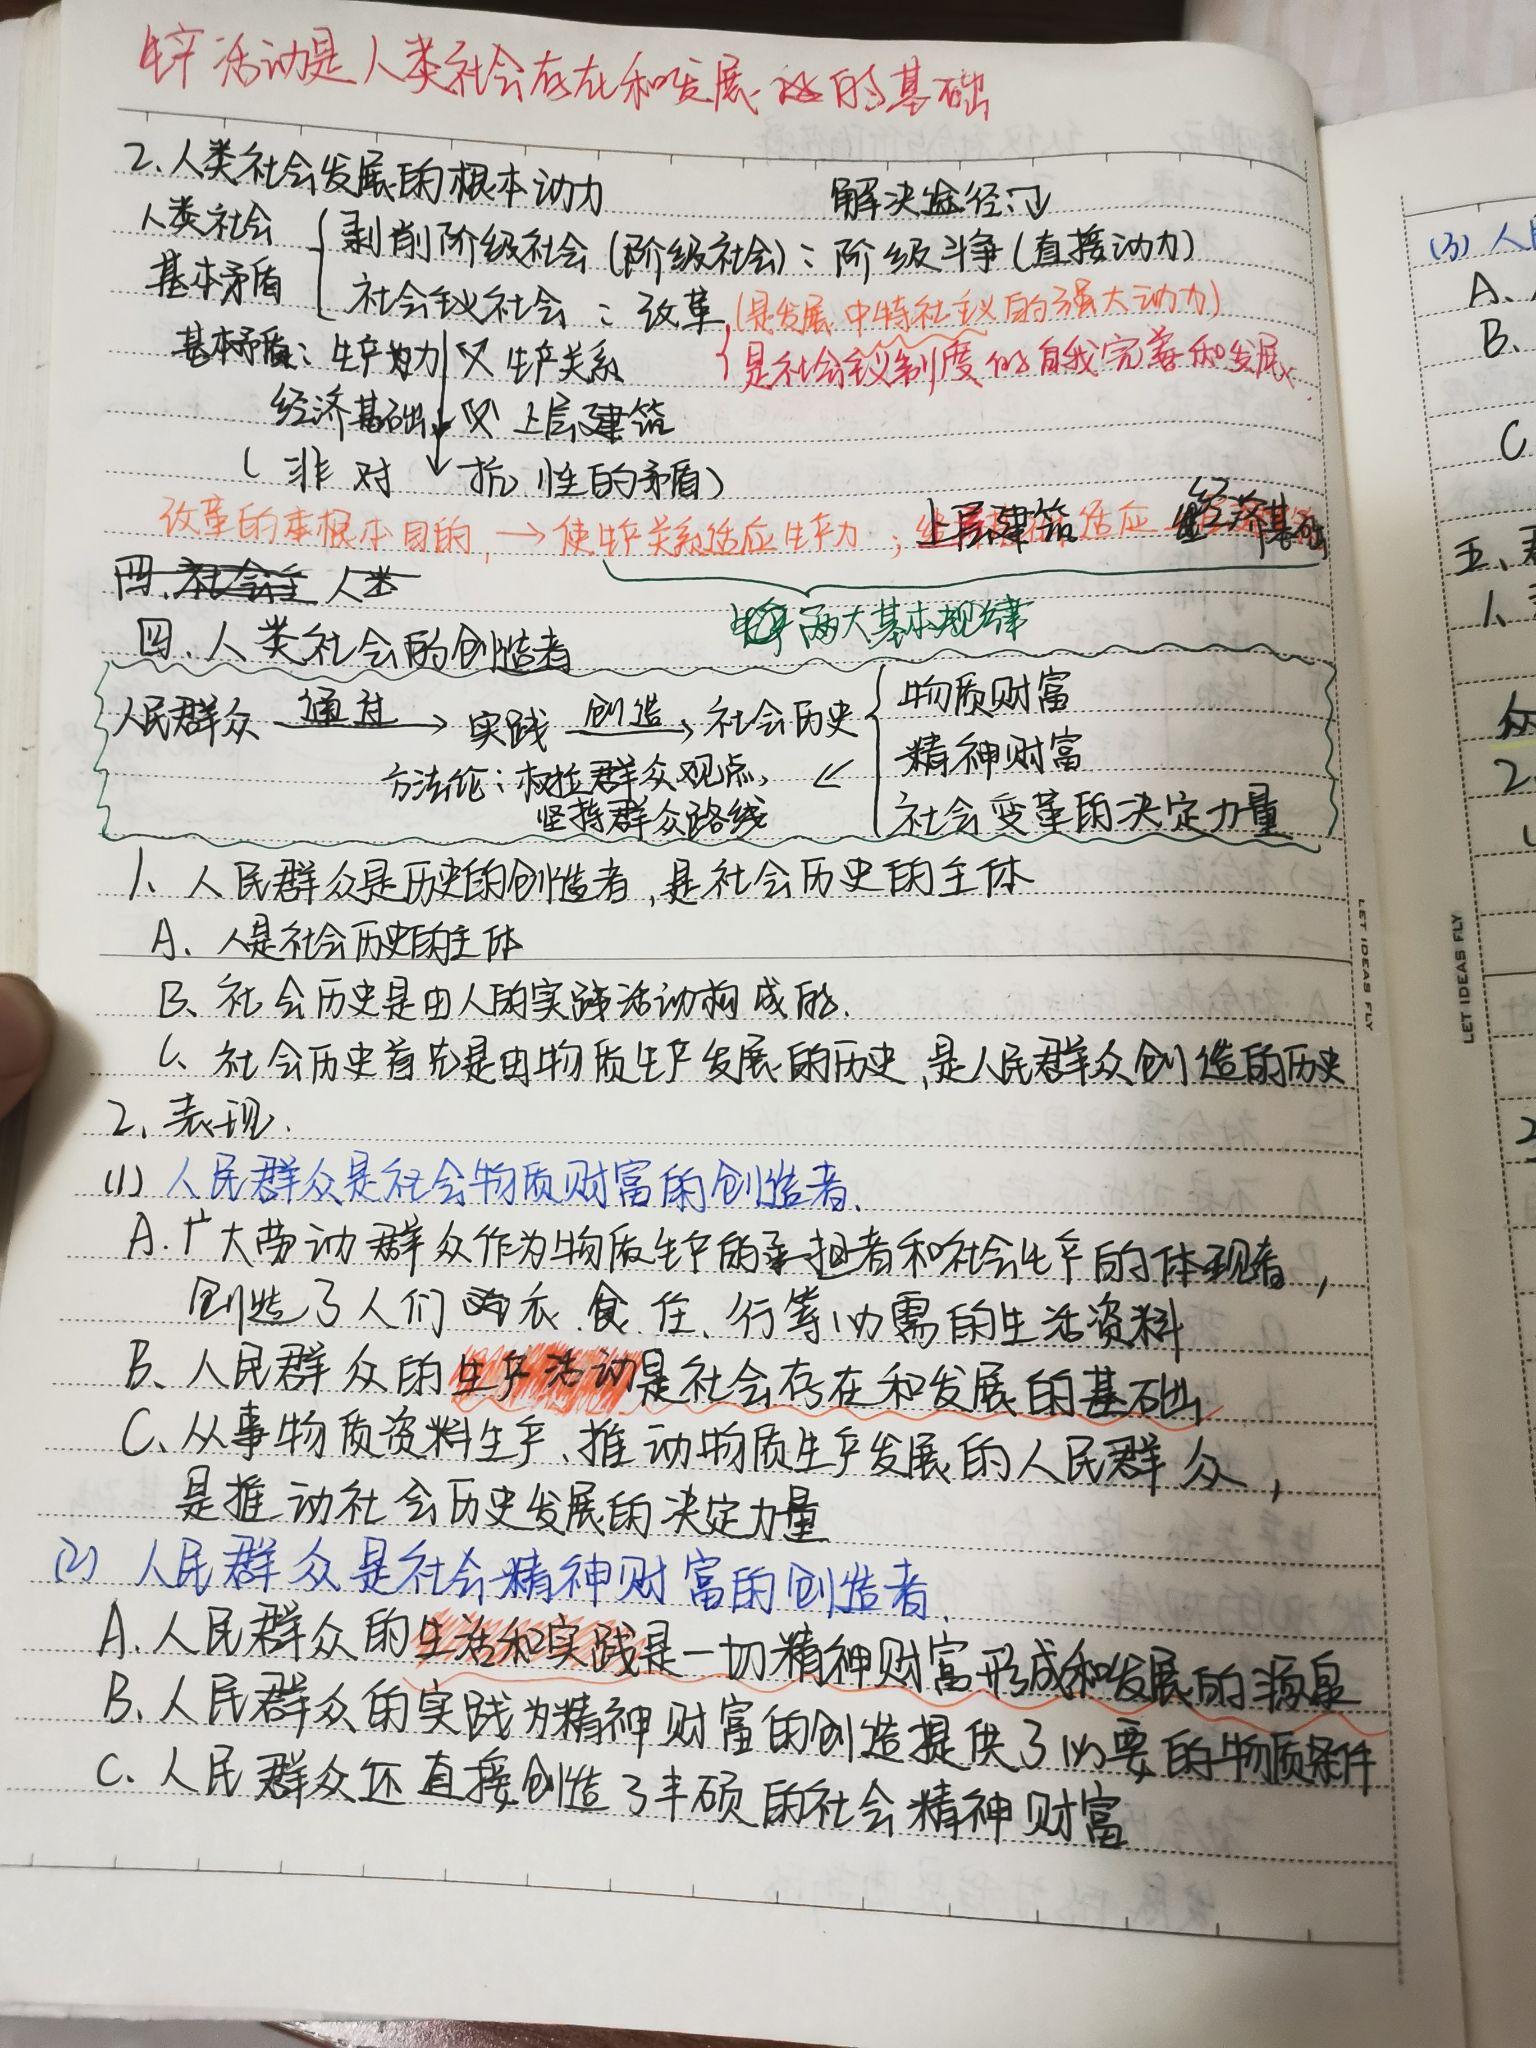 生产活动是人类社会存在和发展的基础
2.人类社会发展的根本动力
解决途径
人类社会
基本矛盾
剥削阶级社会(阶级社会):阶级斗争(直接动力)
社会主义社会:改革
(是发展中特社主义的强大动力)
是社会主义制度的自我完善和发展
基本矛盾:生产力 生产关系
经济基础 上层建筑
(非对抗性的矛盾)
改革的根本目的,→使生产关系适应生产力;上层建筑适应经济基础
四.社会主 人类
两大基本规律
四.人类社会的创造者
人民群众 通过→ 实践 创造→ 社会历史
物质财富
精神财富
社会变革的决定力量
方法论:树立群众观点、
坚持群众路线
1、人民群众是历史的创造者,是社会历史的主体
A、人是社会历史的主体
B、社会历史是由人的实践活动构成的.
C、社会历史首先是由物质生产发展的历史,是人民群众创造的历史
2、表现.
(1)人民群众是社会物质财富的创造者.
A.广大劳动群众作为物质生产的承担者和社会生产的体现者,
创造了人们 衣、食、住、行等必需的生活资料
B、人民群众的生产活动是社会存在和发展的基础
C、从事物质资料生产、推动物质生产发展的人民群众,
是推动社会历史发展的决定力量
(2)人民群众是社会精神财富的创造者.
A.人民群众的生活和实践是一切精神财富形成和发展的源泉
B.人民群众的实践为精神财富的创造提供了必要的物质条件
C.人民群众还直接创造了丰硕的社会精神财富
LET IDEAS FLY
LET IDEAS FLY
(3)人
A、
B、
C
五、
1、
众
2
2